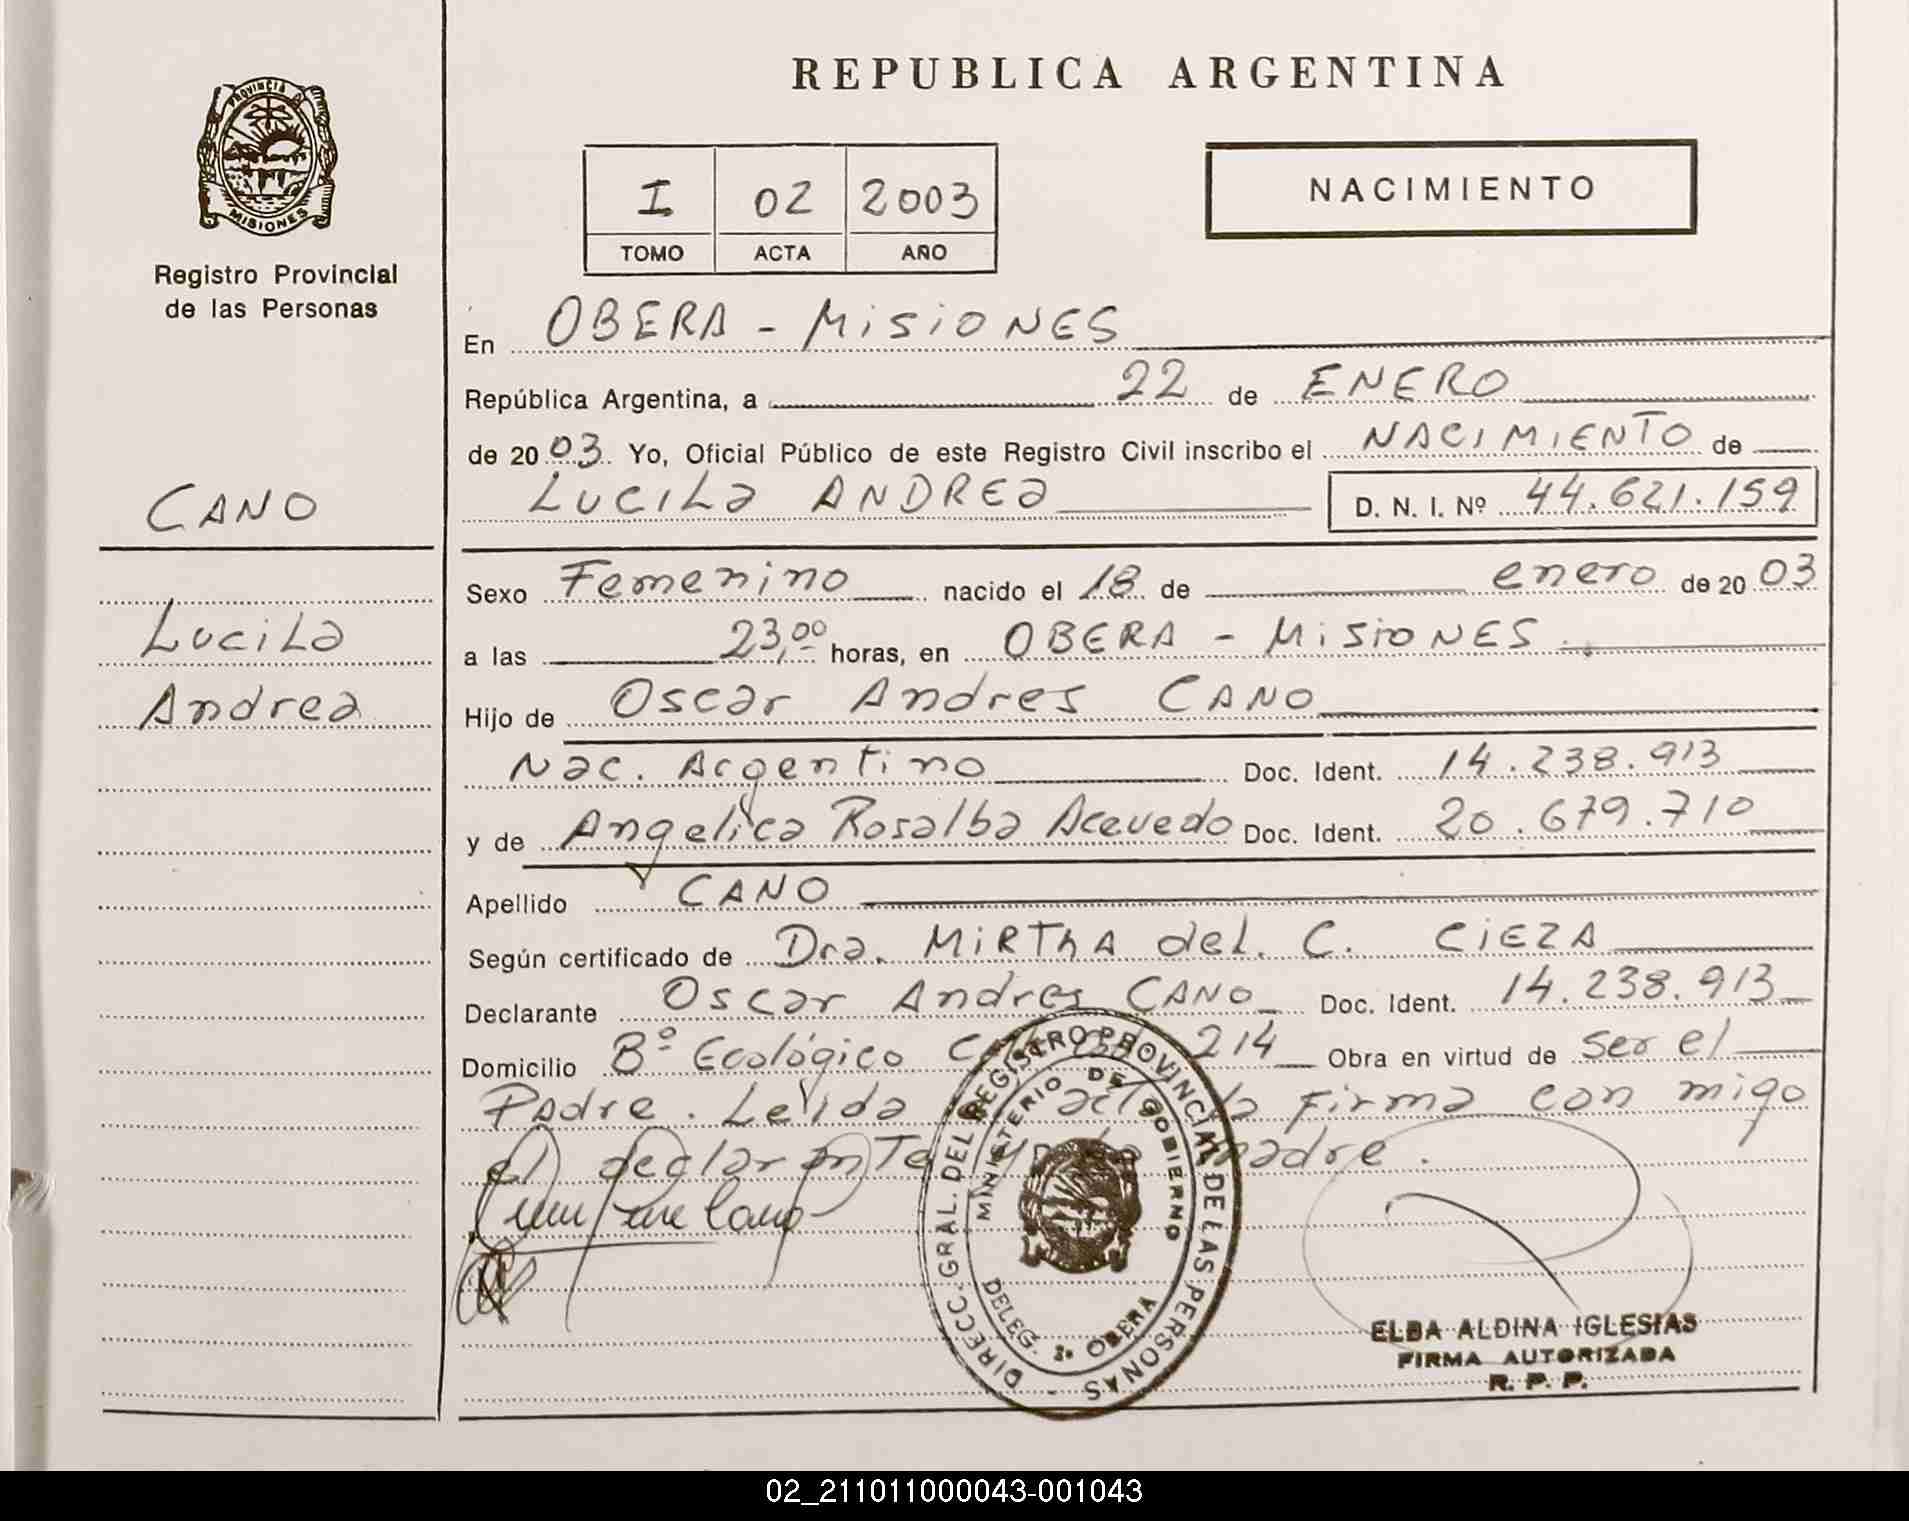 REPUBLICA ARGENTINA
PROVINCIA D MISIONES
Registro Provincial
de las Personas
I 02 2003
TOMO ACTA AÑO
NACIMIENTO
En OBERA - MISIONES
República Argentina, a 22 de ENERO
de 2003 Yo, Oficial Público de este Registro Civil inscribo el NACIMIENTO de
LUCILA ANDREA D. N. I. Nº 44.621.159
CANO
Lucila
Andrea
Sexo Femenino nacido el 18 de enero de 2003
a las 23,00 horas, en OBERA - MISIONES.
Hijo de Oscar Andres CANO
Nac. Argentino Doc. Ident. 14.238.913
y de Angelica Rosalba Acevedo Doc. Ident. 20.679.710
Apellido CANO
Según certificado de Dra. MIRTHA del. C. CIEZA
Declarante Oscar Andres CANO Doc. Ident. 14.238.913
Domicilio Bº Ecológico 214 Obra en virtud de ser el
Padre. Leida acta la firma con migo
el declarante y madre.
DIRECC. GRAL. DEL REGISTRO PROVINCIAL DE LAS PERSONAS -
MINISTERIO DE GOBIERNO
DELEG. 2ª OBERA
ELBA ALDINA IGLESIAS
FIRMA AUTORIZADA
R. P. P.
02_211011000043-001043